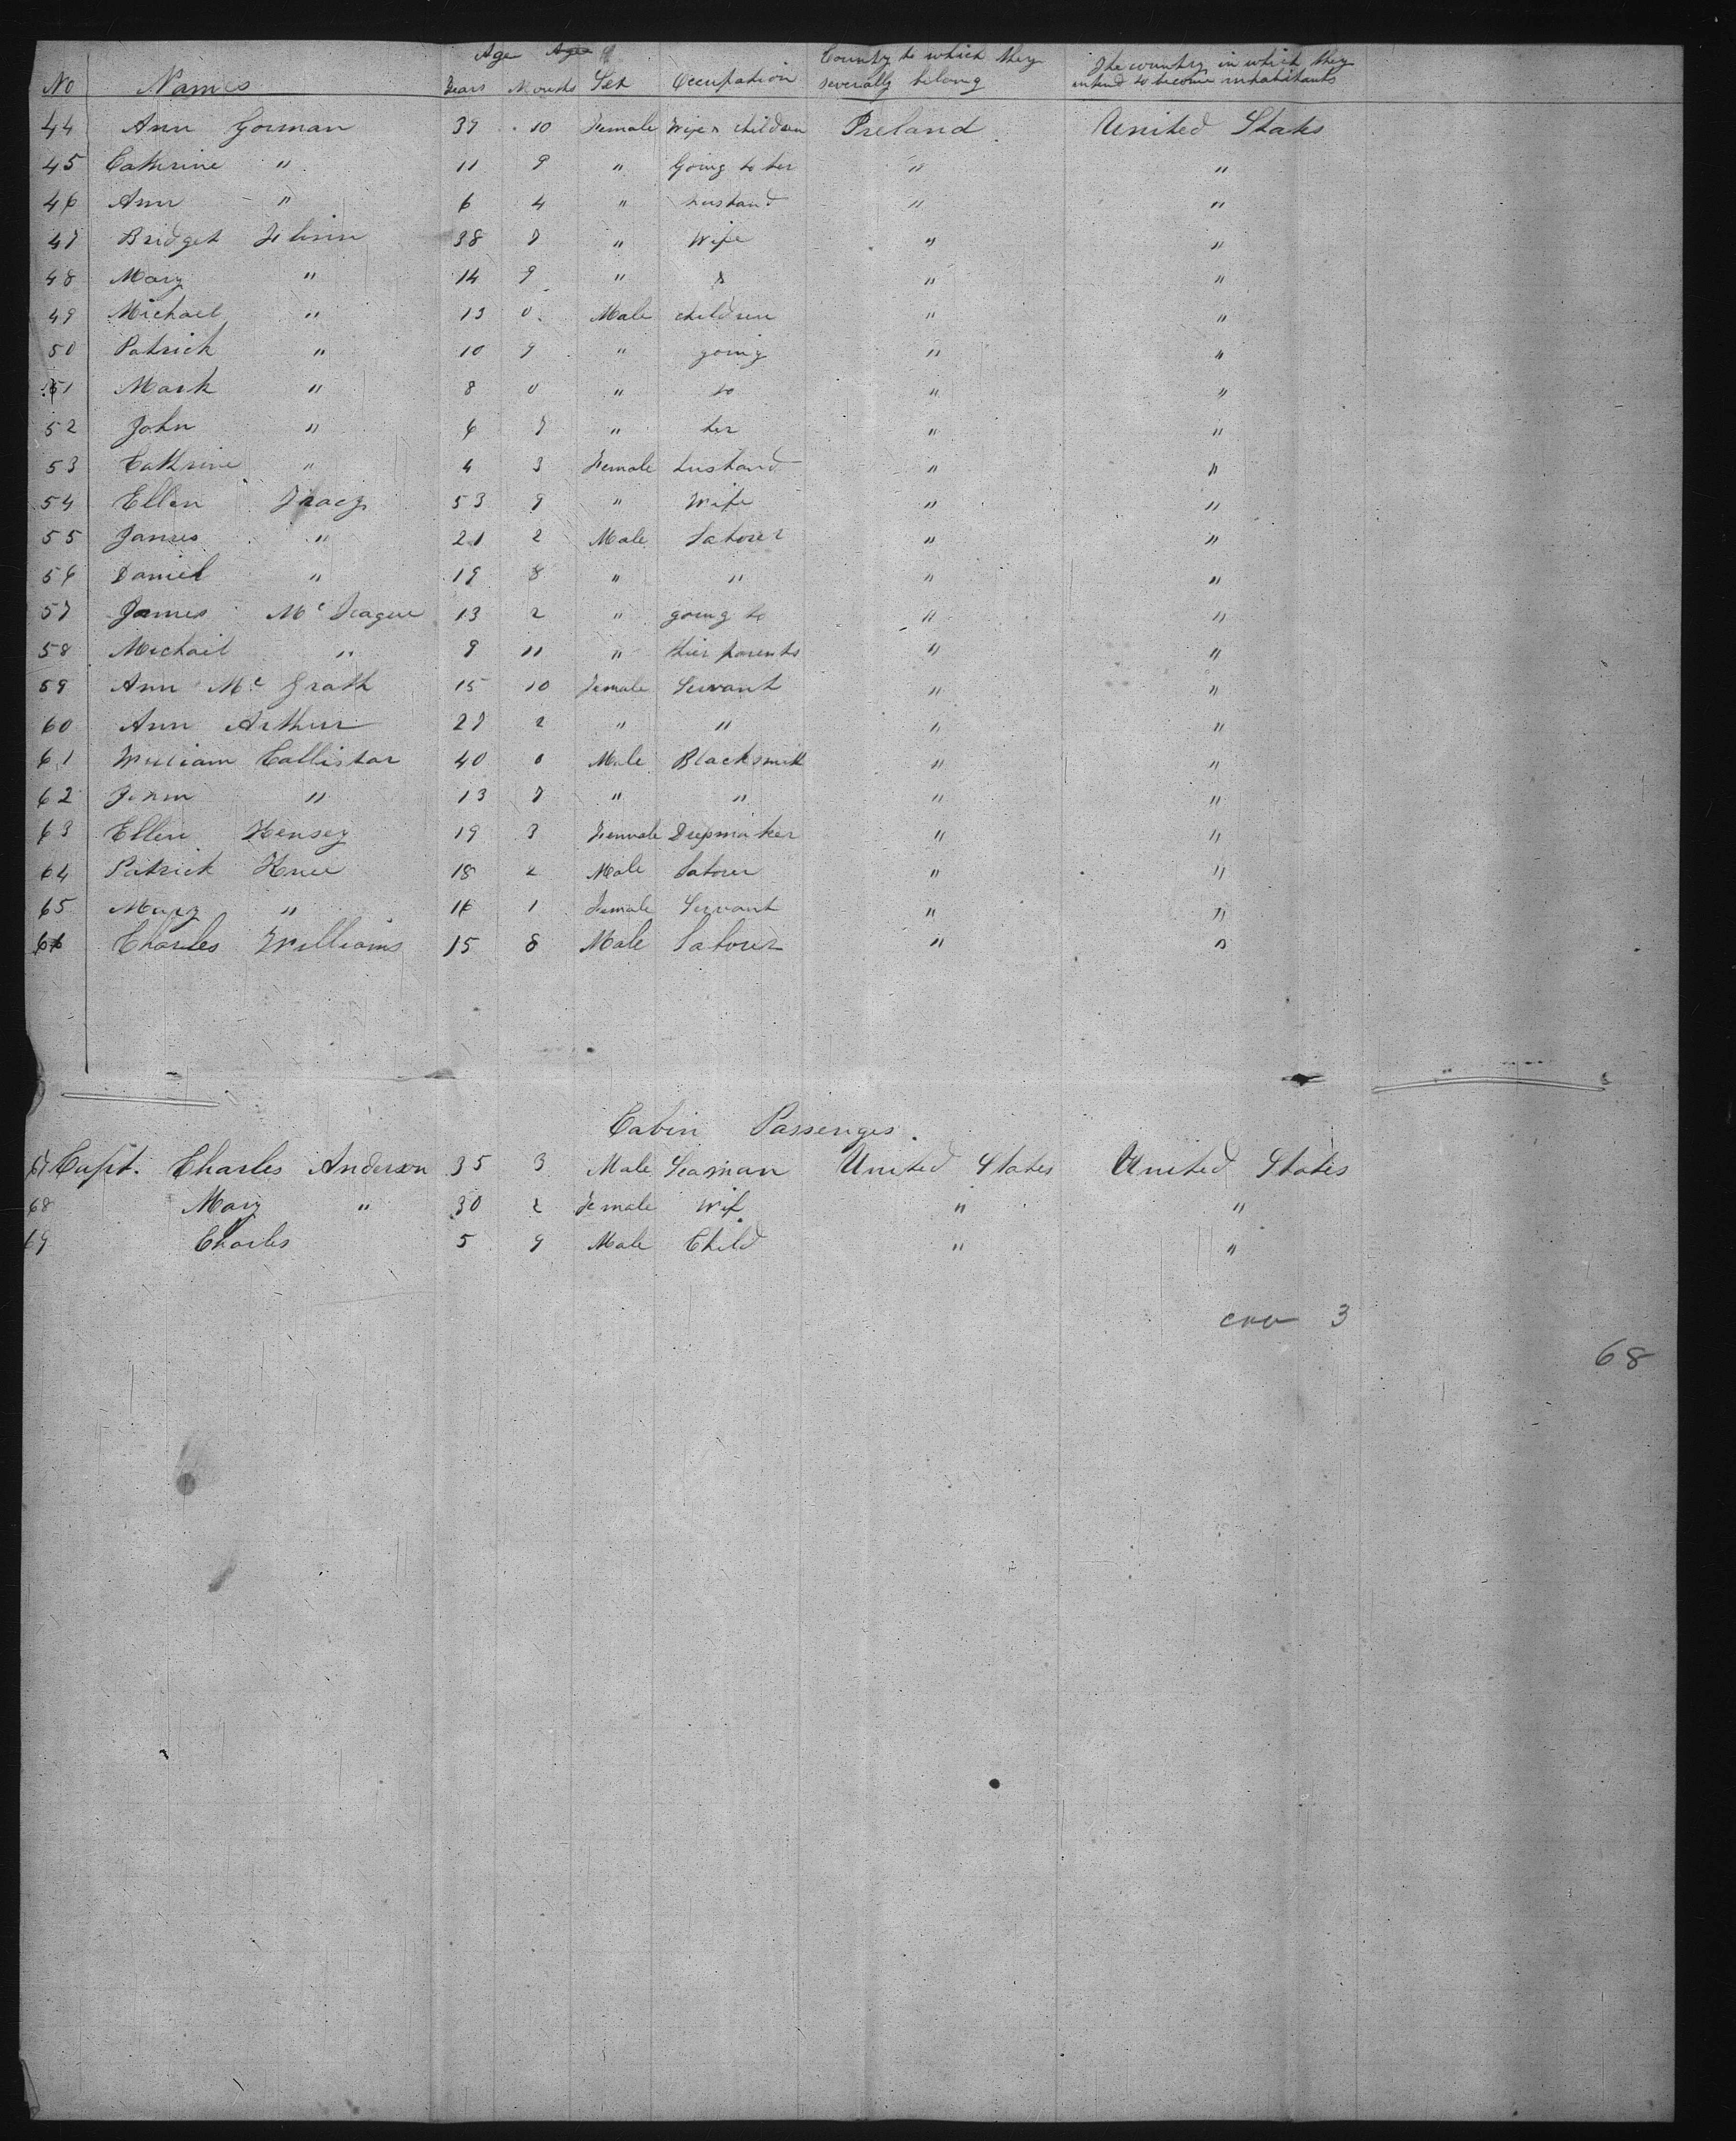 Age Age Country to which they The country in which they
No Names Years Months Sex Occupation severally belong intend to become inhabitants
44 Ann Gorman 39 10 Female Wife & children Ireland United States
45 Cathrine " 11 9 " Going to her " "
46 Ann " 6 4 " husband " "
47 Bridget 38 7 " Wife " "
48 Mary " 14 9 " & " "
49 Michael " 13 0 Male children " "
50 Patrick " 10 9 " going " "
51 Mark " 8 0 " to " "
52 John " 6 7 " her " "
53 Cathrine " 4 3 Female husband " "
54 Ellen Tracy 53 9 " Wife " "
55 James " 21 2 Male Labourer " "
56 Daniel " 19 8 " " " "
57 James Mc Teague 13 2 " going to " "
58 Michail " 9 11 " thier parents " "
59 Ann Mc Grath 15 10 Female Servant " "
60 Ann Arthur 27 2 " " " "
61 William Callistar 40 0 Male Blacksmith " "
62 " 13 7 " " " "
63 Ellen Hensey 19 3 Female Dressmaker " "
64 Patrick 18 2 Male Labourer " "
65 Mary " 16 1 Female Servant " "
66 Charles Williams 15 8 Male Labourer " "
Cabin Passenges.
67 Capt. Charles Anderson 35 3 Male Seaman United States United States
68 Mary " 30 2 Female Wif " "
69 Charles 5 9 Male Child " "
3
68